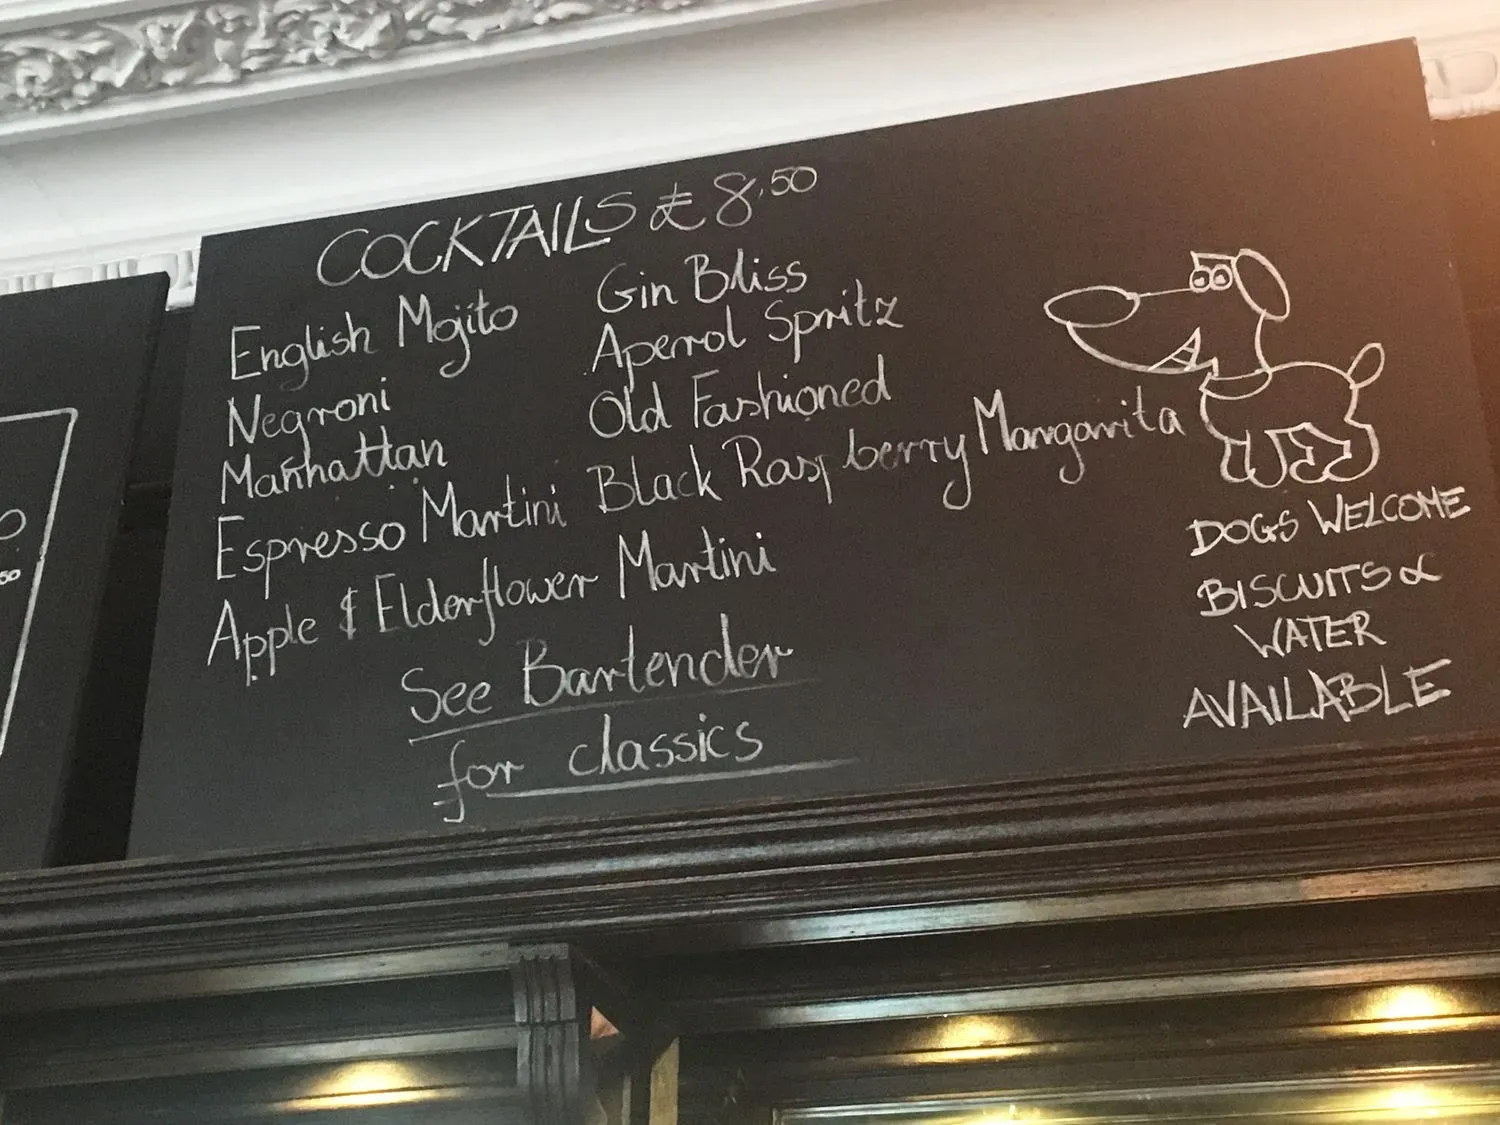 COCKTAILS £8.50
English Mojito
Negroni
Manhattan
Espresso Martini
Apple & Elderflower Martini
Gin Bliss
Aperol Spritz
Old Fashioned
Black Raspberry Margarita
See Bartender
for classics
DOGS WELCOME
BISCUITS &
WATER
AVAILABLE